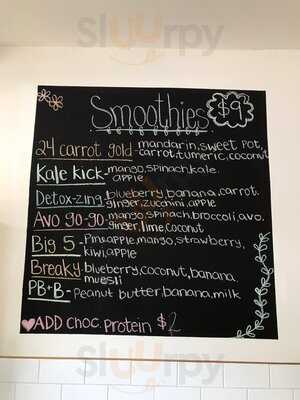 Sluurpy
Smoothies $9
24 carrot gold - mandarin, sweet pot, carrot, tumeric, coconut
Kale kick - mango, spinach, kale, apple
Detox-zing blueberry, banana, carrot, ginger, zucchini, apple
Avo go-go - mango, spinach, broccoli, avo, ginger, lime, coconut
Big 5 - Pineapple, mango, strawberry, kiwi, apple
Breaky - blueberry, coconut, banana, muesli
PB+B - Peanut butter, banana, milk
ADD choc. protein $2
Sluurpy